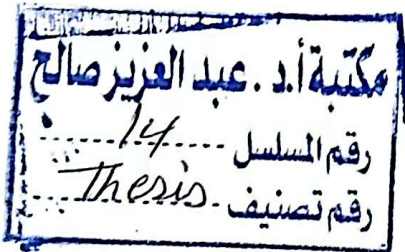 مكتبة أ.د. عبد العزيز صالح
رقم المسلسل ........14........
رقم تصنيف ..Thesis..